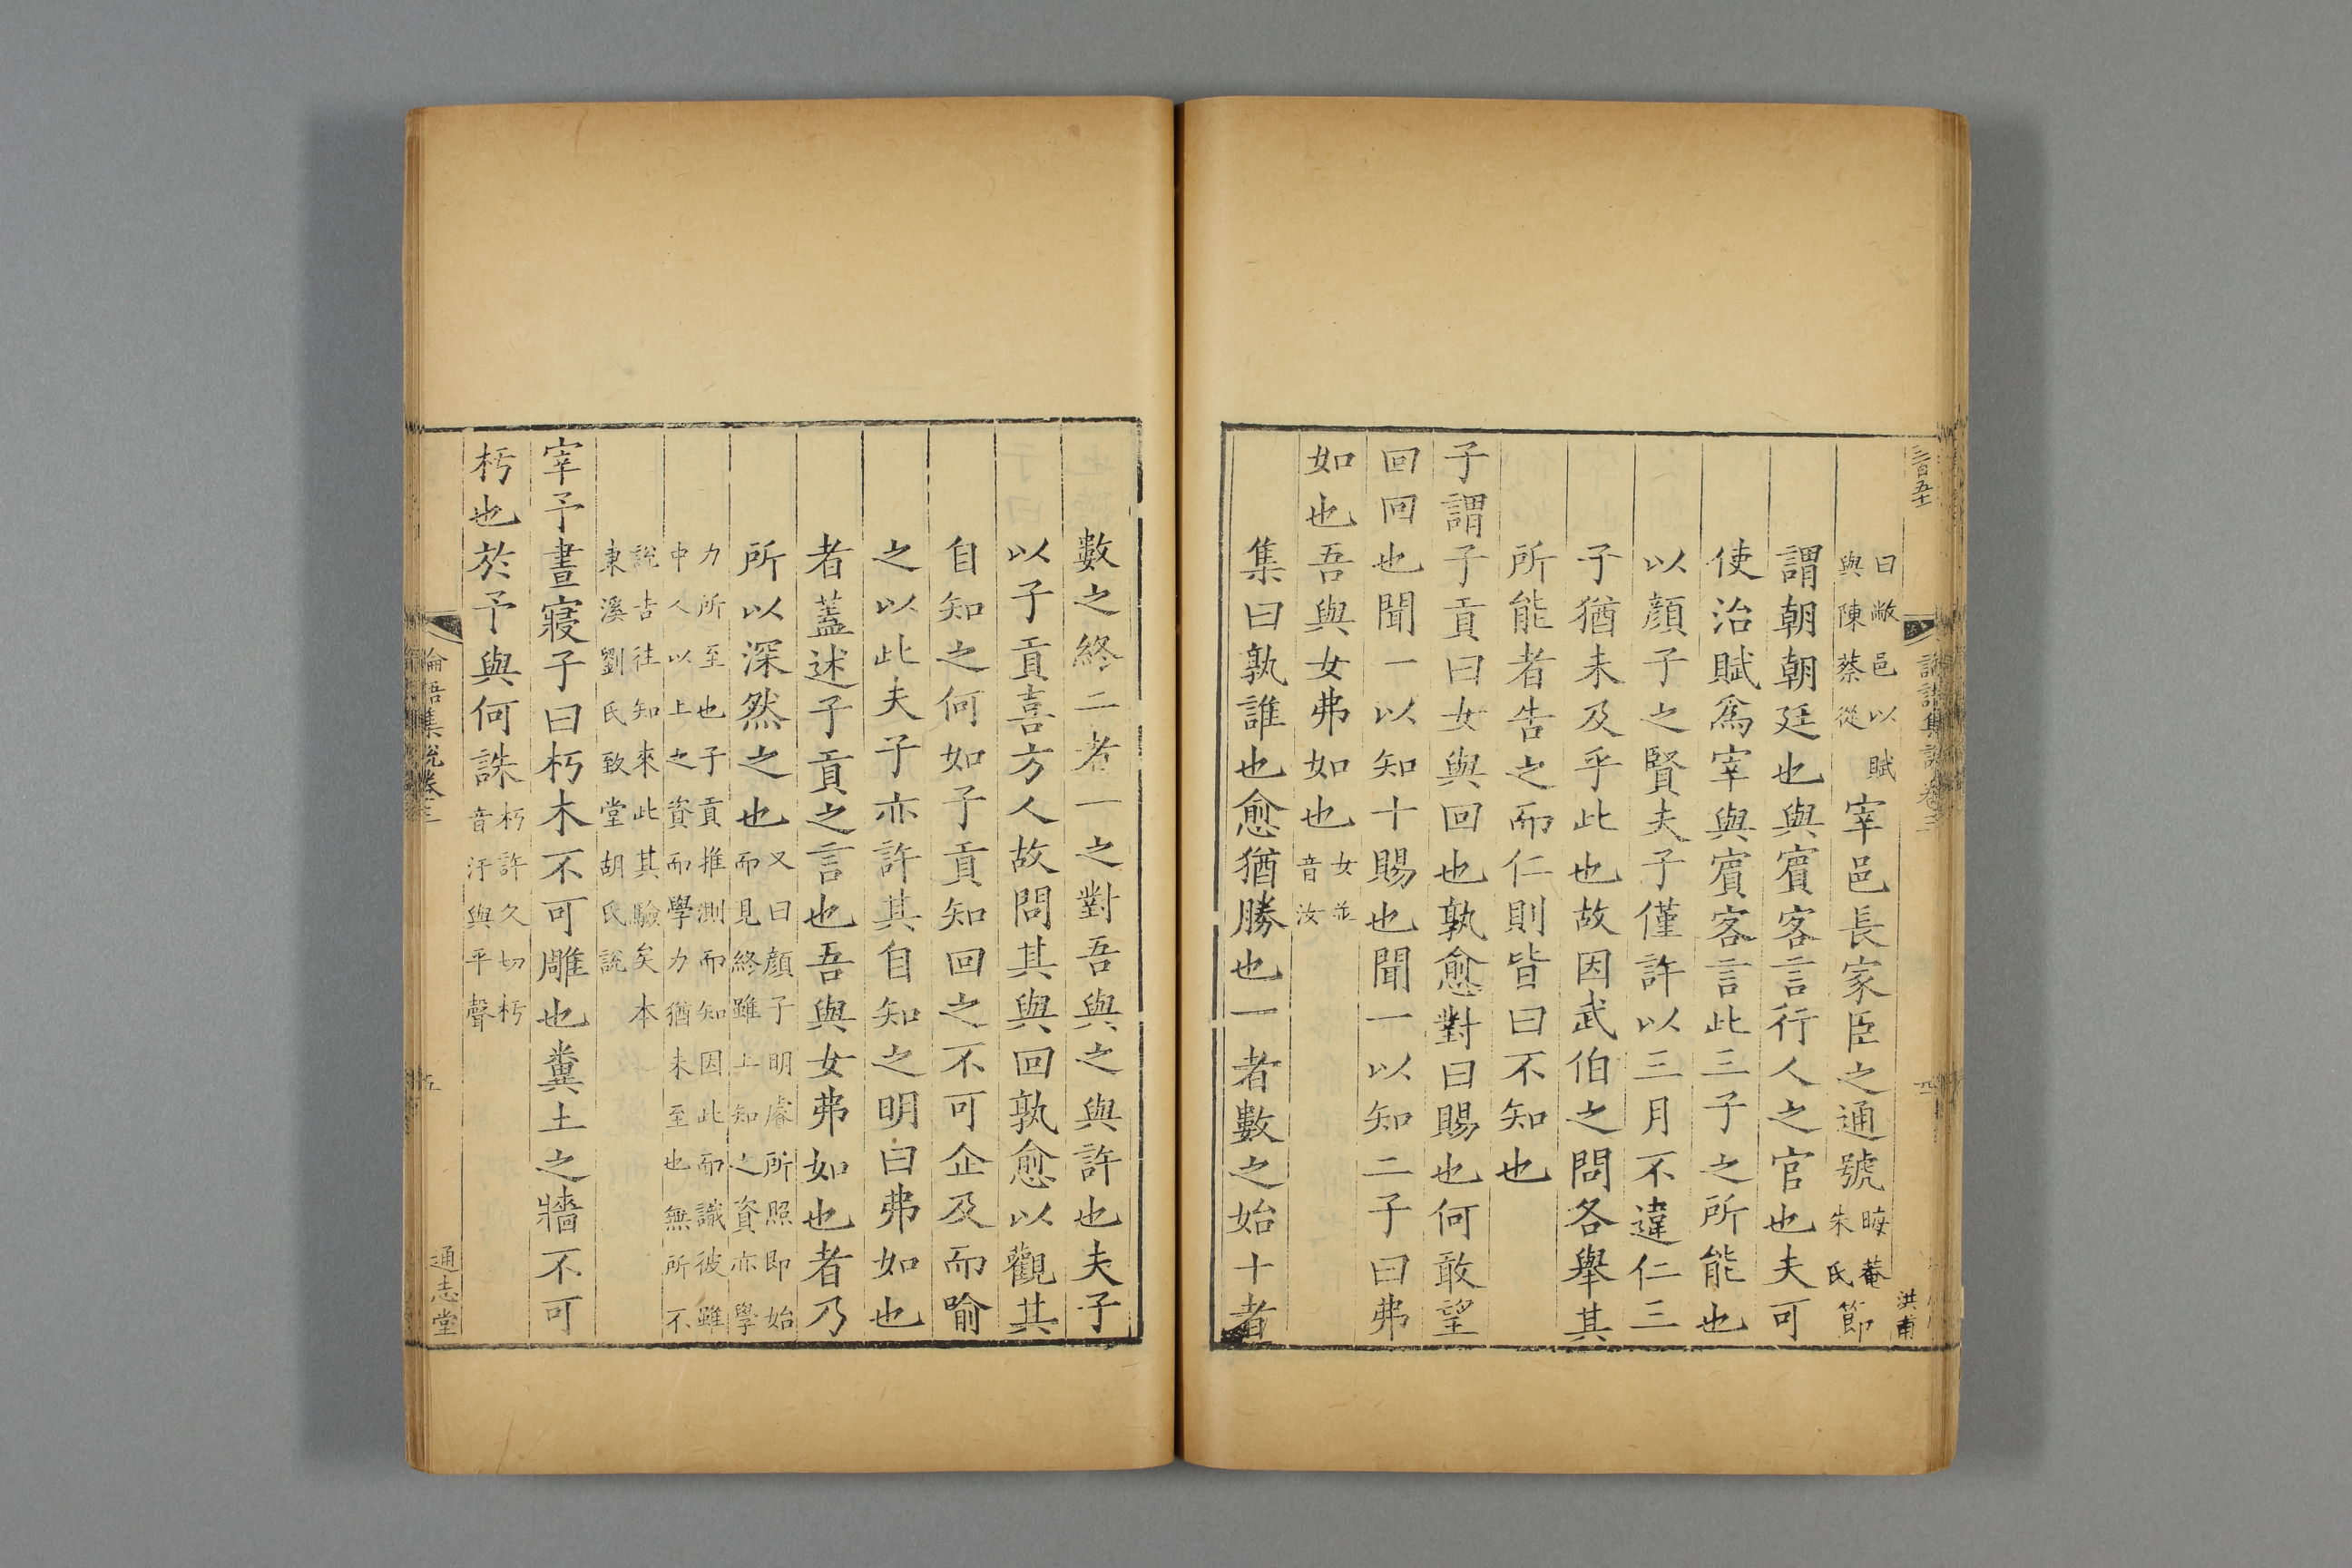 三百五十
論語集說卷三
四
洪甫
曰敝邑以賦
與陳蔡從
宰邑長家臣之通號
晦菴
朱氏
節
謂朝朝廷也與賓客言行人之官也夫可
使治賦爲宰與賓客言此三子之所能也
以顏子之賢夫子僅許以三月不違仁三
子猶未及乎此也故因武伯之問各舉其
所能者告之而仁則皆曰不知也
子謂子貢曰女與回也孰愈對曰賜也何敢望
回回也聞一以知十賜也聞一以知二子曰弗
如也吾與女弗如也
女並
音汝
集曰孰誰也愈猶勝也一者數之始十者
數之終二者一之對吾與之與許也夫子
以子貢喜方人故問其與回孰愈以觀其
自知之何如子貢知回之不可企及而喻
之以此夫子亦許其自知之明曰弗如也
者蓋述子貢之言也吾與女弗如也者乃
所以深然之也
又曰顏子明睿所照即始
而見終雖上知之資亦學
力所至也子貢推測而知因此而識彼雖
中人以上之資而學力猶未至也無所不
說告往知來此其驗矣本
東溪劉氏致堂胡氏說
宰予晝寢子曰朽木不可雕也糞土之牆不可
杇也於予與何誅
朽許久切杇
音汙與平聲
論語集說卷三
五
通志堂